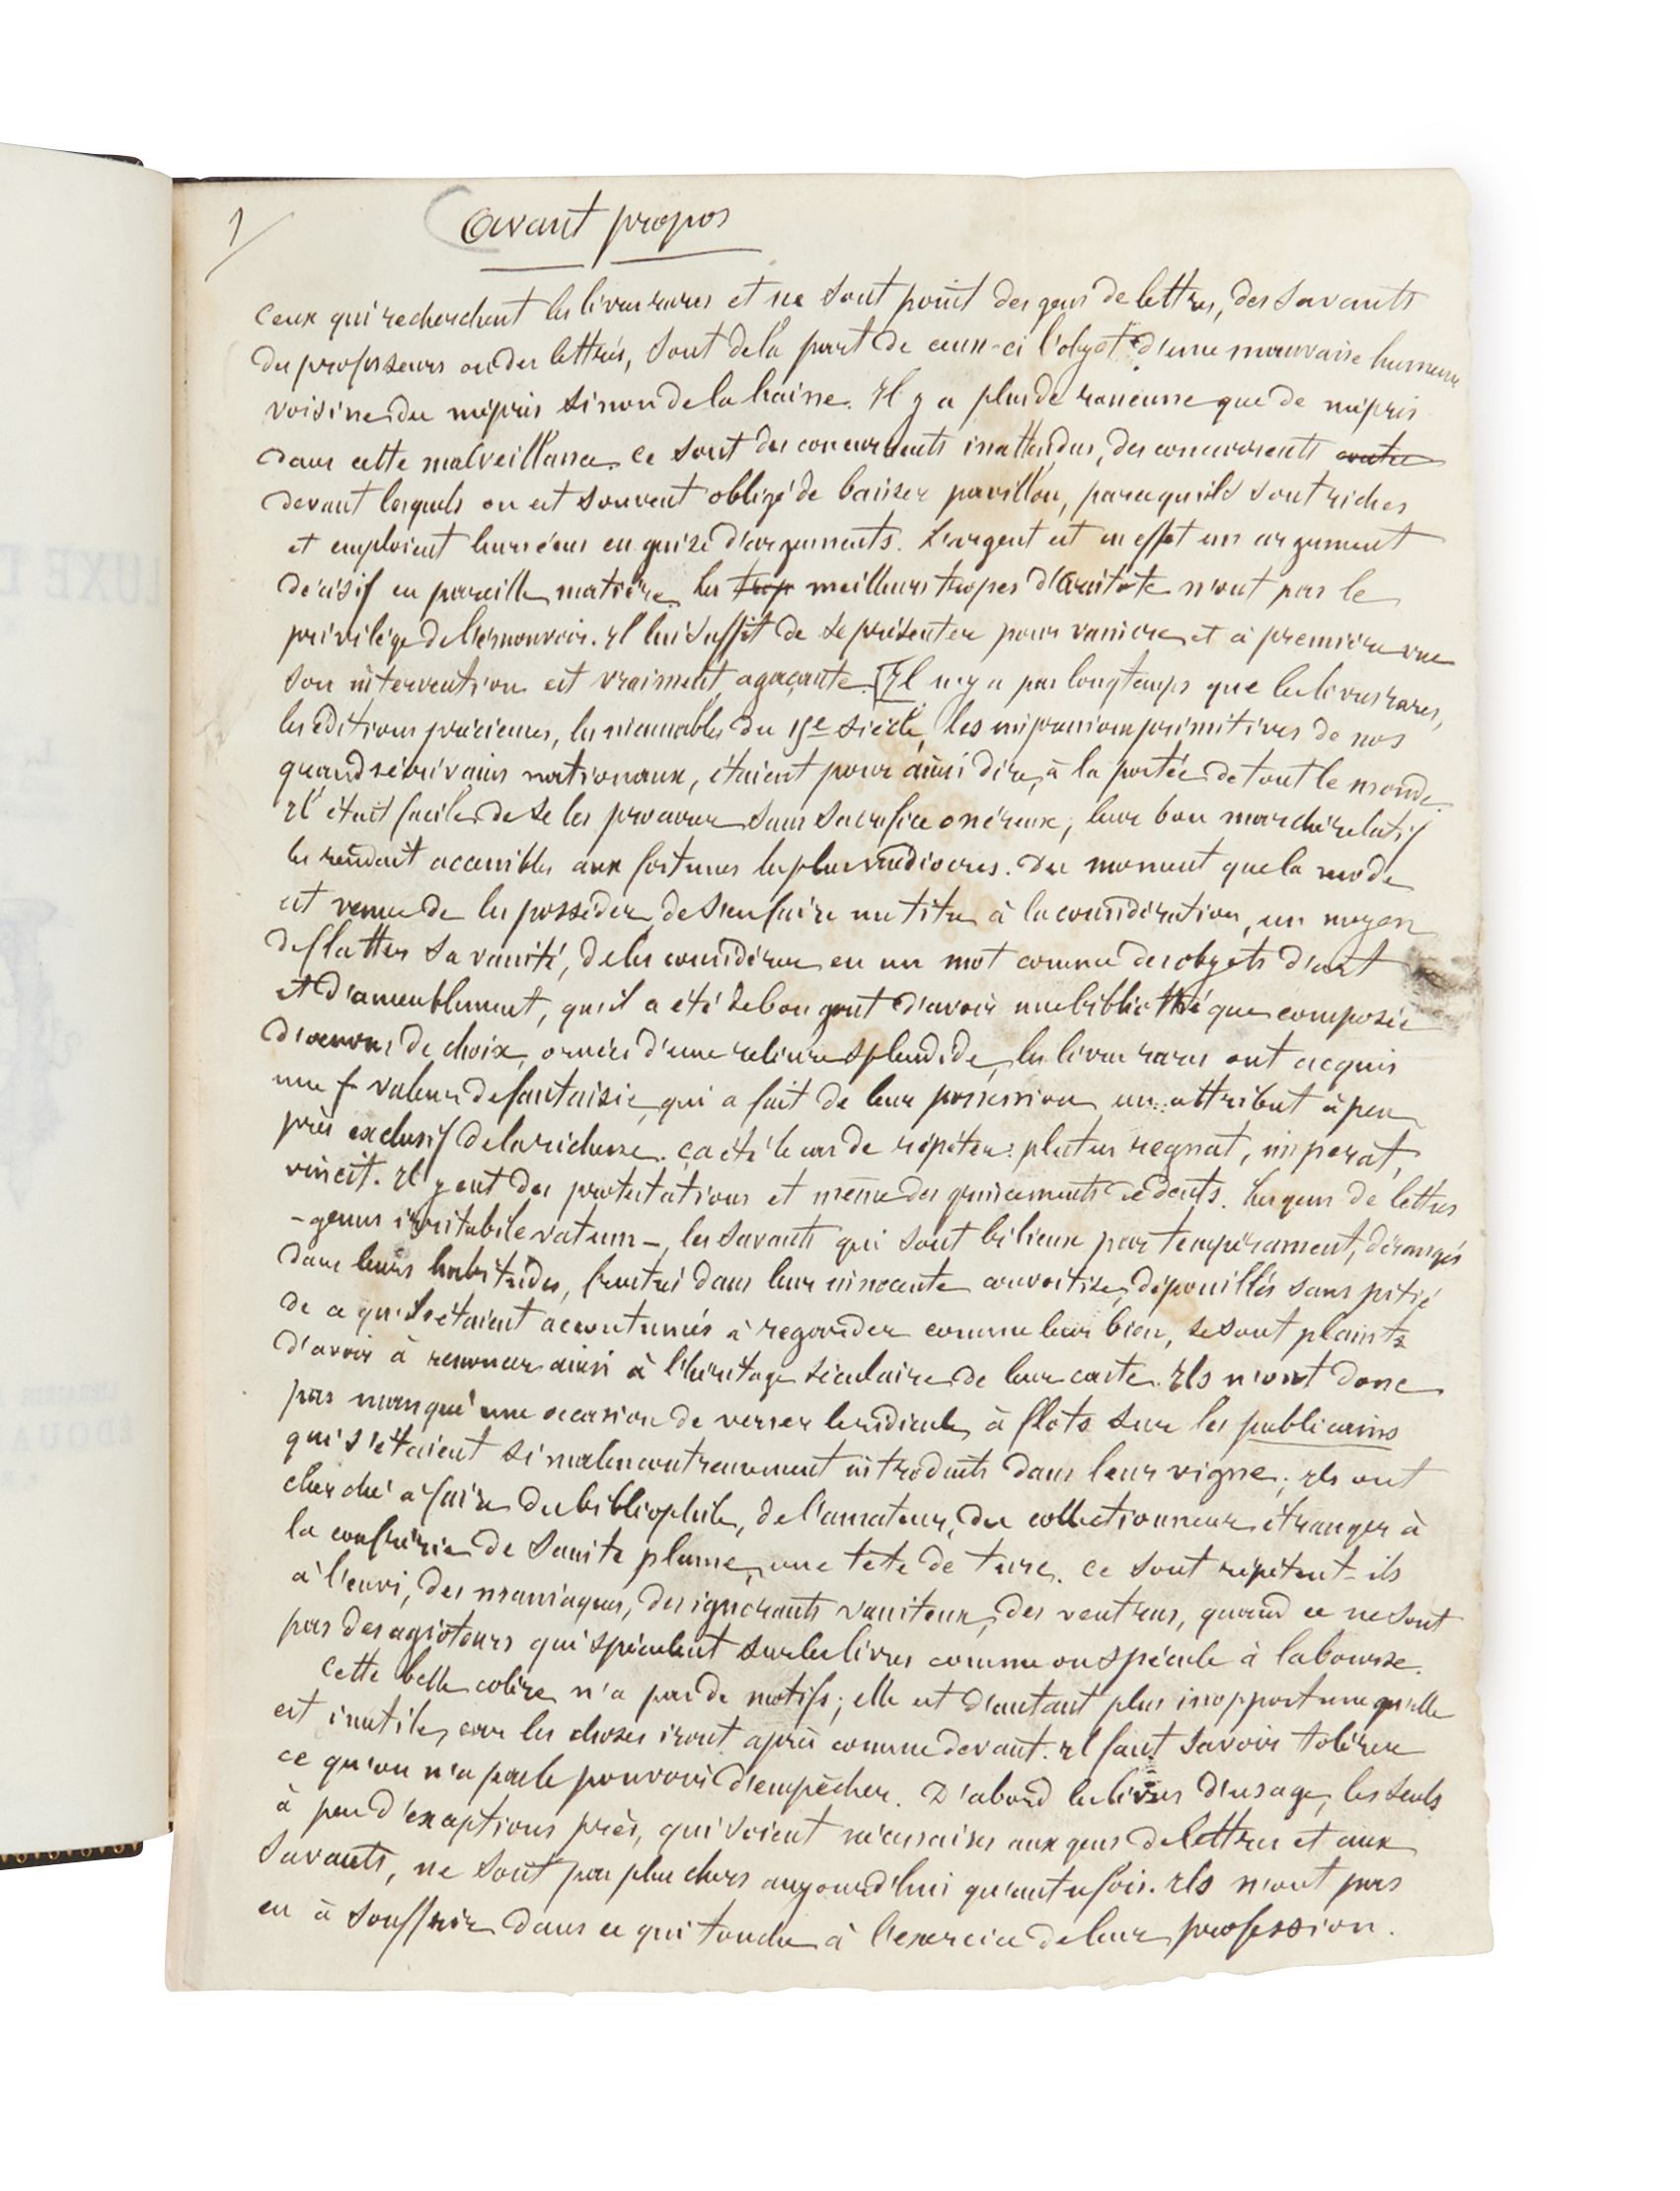 1/
Avant propos
Ceux qui recherchent les livres rares et ne sont point des gens de lettres, des savants
des professeurs ou des lettrés, sont de la part de ceux-ci l'objet d'une mauvaise humeur
voisine du mépris sinon de la haine. Il y a plus de rancune que de mépris
dans cette malveillance. Ce sont des concurrents inattendus, des concurrents
devant lesquels on est souvent obligé de baisser pavillon, parcequ'ils sont riches
et emploient leurs écus en guise d'arguments. L'argent est en effet un argument
décisif en pareille matière. Les trop meilleurs tropes d'Aristote n'ont pas le
privilège de l'émouvoir. Il lui suffit de se présenter pour vaincre et à première vue
son intervention est vraiment agaçante. [Il n'y a pas longtemps que les livres rares,
les éditions précieuses, les incunables du 15e siècle, les impressions primitives de nos
grands écrivains nationaux, étaient pour ainsi dire à la portée de tout le monde.
Il était facile de se les procurer sans sacrifice onéreux; leur bon marché relatif
les rendait accessibles aux fortunes les plus médiocres. Du moment que la mode
est venue de les posséder, de s'en faire un titre à la considération, un moyen
de flatter sa vanité, de les considérer en un mot comme des objets d'art
et d'ameublement, qu'il a été de bon gout d'avoir une bibliothèque composée
d'œuvres de choix, ornées d'une reliure splendide, les livres rares ont acquis
une f valeur de fantaisie, qui a fait de leur possession un attribut à peu
près exclusif de la richesse. Ça été le cas de répéter: plutus regnat, imperat,
vincit. Il y eut des protestations et même des grincements de dents. Les gens de lettres
- genus irritabile vatum -, les savants qui sont bilieux par tempérament, dérangés
dans leurs habitudes, frustrés dans leur innocente convoitise, dépouillés sans pitié
de ce qu'ils étaient accoutumés à regarder comme leur bien, se sont plaints
d'avoir à renoncer ainsi à l'héritage séculaire de leur caste. Ils n'ont donc
pas manqué une occasion de verser le ridicule à flots sur les publicains
qui s'étaient si malencontreusement introduits dans leur vigne; ils ont
cherché à faire du bibliophile, de l'amateur, du collectionneur étranger à
la confrérie de Sainte plume, une tete de turc. Ce sont répètent-ils
à l'envi, des maniaques, des ignorants vaniteux, des ventrus, quand ce ne sont
pas des agioteurs qui spéculent sur les livres comme on spécule à la bourse.
Cette belle colère n'a pas de motifs; elle est d'autant plus inopportune qu'elle
est inutile, car les choses iront après comme devant. Il faut savoir tolérer
ce qu'on n'a pas le pouvoir d'empêcher. D'abord les livres d'usage, les seuls
à peu d'exceptions près, qui soient nécessaires aux gens de lettres et aux
savants, ne sont pas plus chers aujourd'hui qu'autrefois. Ils n'ont pas
eu à souffrir dans ce qui touche à l'exercice de leur profession.